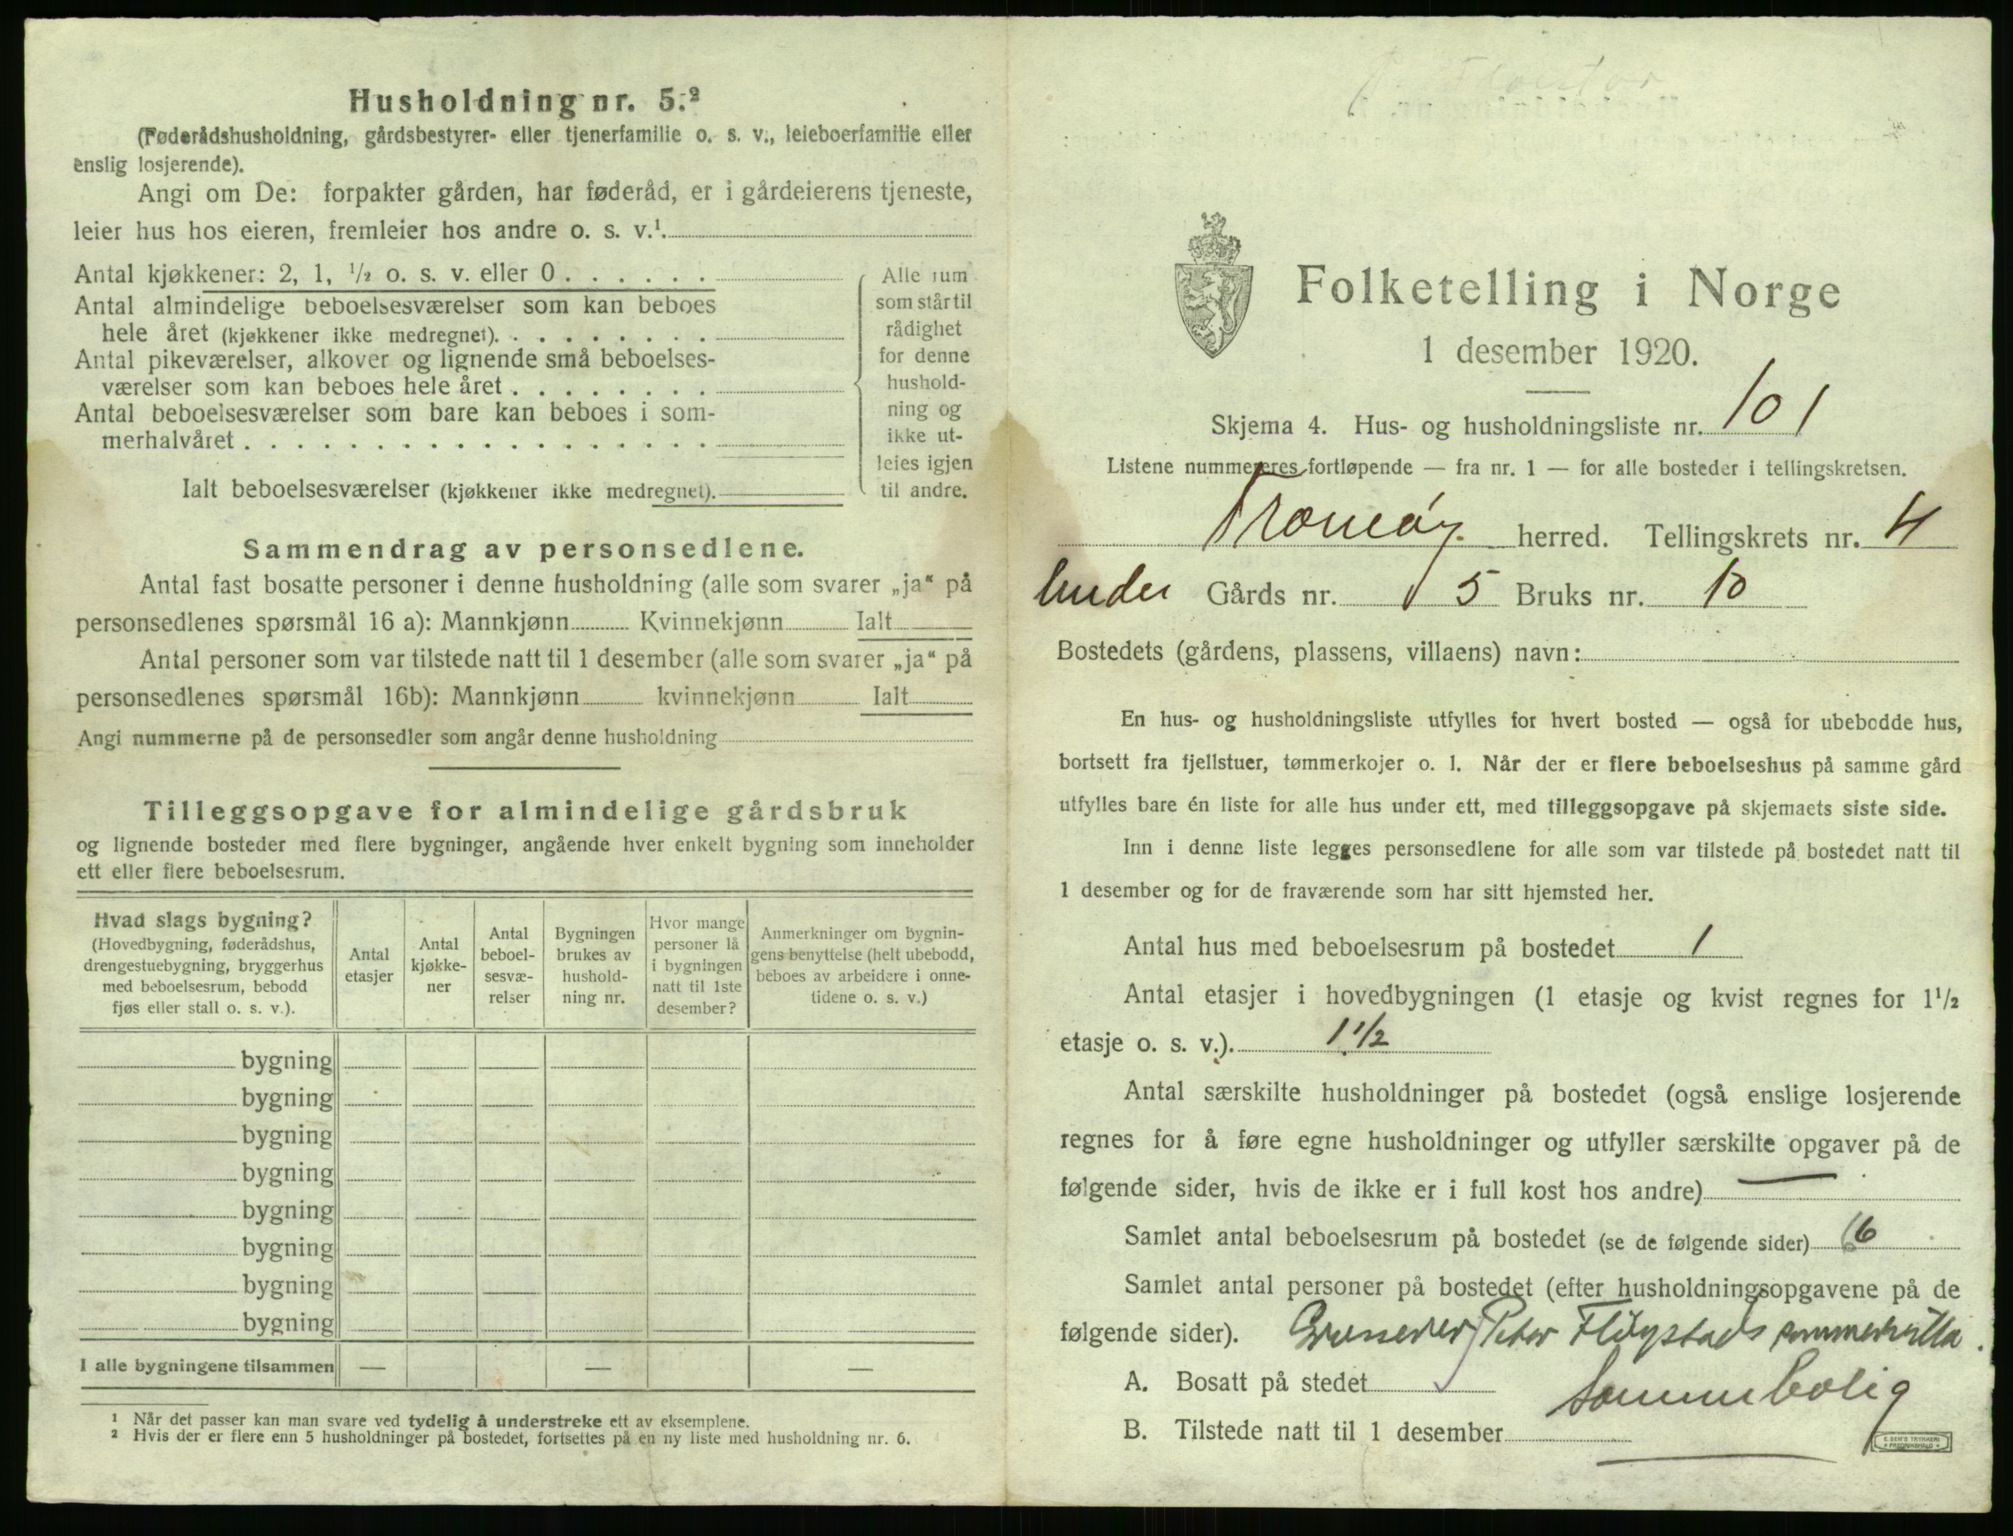 Husholdning nr. 5.²
(Føderådshusholdning, gårdsbestyrer- eller tjenerfamilie o. s. v., leieboerfamilie eller
enslig losjerende).
Angi om De: forpakter gården, har føderåd, er i gårdeierens tjeneste,
leier hus hos eieren, fremleier hos andre o. s. v.¹.
Antal kjøkkener: 2, 1, ½ o. s. v. eller 0 . . . . . .
Antal almindelige beboelsesværelser som kan beboes
hele året (kjøkkener ikke medregnet). . . . . . . . .
Antal pikeværelser, alkover og lignende små beboelses-
værelser som kan beboes hele året . . . . . . . .
Antal beboelsesværelser som bare kan beboes i som-
merhalvåret . . . . . . . . . . . . . . . . . .
Ialt beboelsesværelser (kjøkkener ikke medregnet).
Alle rum
som står til
rådighet
for denne
hushold-
ning og
ikke ut-
leies igjen
til andre.
Sammendrag av personsedlene.
Antal fast bosatte personer i denne husholdning (alle som svarer „ja“ på
personsedlenes spørsmål 16 a): Mannkjønn Kvinnekjønn Ialt
Antal personer som var tilstede natt til 1 desember (alle som svarer „ja“ på
personsedlenes spørsmål 16b): Mannkjønn kvinnekjønn Ialt
Angi nummerne på de personsedler som angår denne husholdning
Tilleggsopgave for almindelige gårdsbruk
og lignende bosteder med flere bygninger, angående hver enkelt bygning som inneholder
ett eller flere beboelsesrum.
Hvad slags bygning?
(Hovedbygning, føderådshus,
drengestuebygning, bryggerhus
med beboelsesrum, bebodd
fjøs eller stall o. s. v.).
Antal
etasjer
Antal
kjøkke-
ner
Antal
beboel-
sesvæ-
relser
Bygningen
brukes av
hushold-
ning nr.
Hvor mange
personer lå
i bygningen
natt til 1ste
desember?
Anmerkninger om bygnin-
gens benyttelse (helt ubebodd,
beboes av arbeidere i onne-
tidene o. s. v.)
bygning
bygning
bygning
bygning
bygning
bygning
bygning
bygning
I alle bygningene tilsammen — — —
¹ Når det passer kan man svare ved tydelig å understreke ett av eksemplene.
² Hvis der er flere enn 5 husholdninger på bostedet, fortsettes på en ny liste med husholdning nr. 6.
Folketelling i Norge
1 desember 1920.
Skjema 4. Hus- og husholdningsliste nr. 101
Listene nummereres fortløpende — fra nr. 1 — for alle bosteder i tellingskretsen.
Tromøy herred. Tellingskrets nr. 4
under Gårds nr. 5 Bruks nr. 10
Bostedets (gårdens, plassens, villaens) navn:
En hus- og husholdningsliste utfylles for hvert bosted — også for ubebodde hus,
bortsett fra fjellstuer, tømmerkojer o. l. Når der er flere beboelseshus på samme gård
utfylles bare én liste for alle hus under ett, med tilleggsopgave på skjemaets siste side.
Inn i denne liste legges personsedlene for alle som var tilstede på bostedet natt til
1 desember og for de fraværende som har sitt hjemsted her.
Antal hus med beboelsesrum på bostedet 1
Antal etasjer i hovedbygningen (1 etasje og kvist regnes for 1½
etasje o. s. v.). 1½
Antal særskilte husholdninger på bostedet (også enslige losjerende
regnes for å føre egne husholdninger og utfyller særskilte opgaver på de
følgende sider, hvis de ikke er i full kost hos andre) —
Samlet antal beboelsesrum på bostedet (se de følgende sider) 6
Samlet antal personer på bostedet (efter husholdningsopgavene på de
følgende sider). Grosserer Peter Fløystads sommervilla.
A. Bosatt på stedet
Sommerbolig
B. Tilstede natt til 1 desember
E. SEM'S TRYKKERI
FREDRIKSHALD